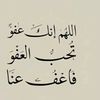 اللهم إنك عفو
تحب العفو
فاعف عنا